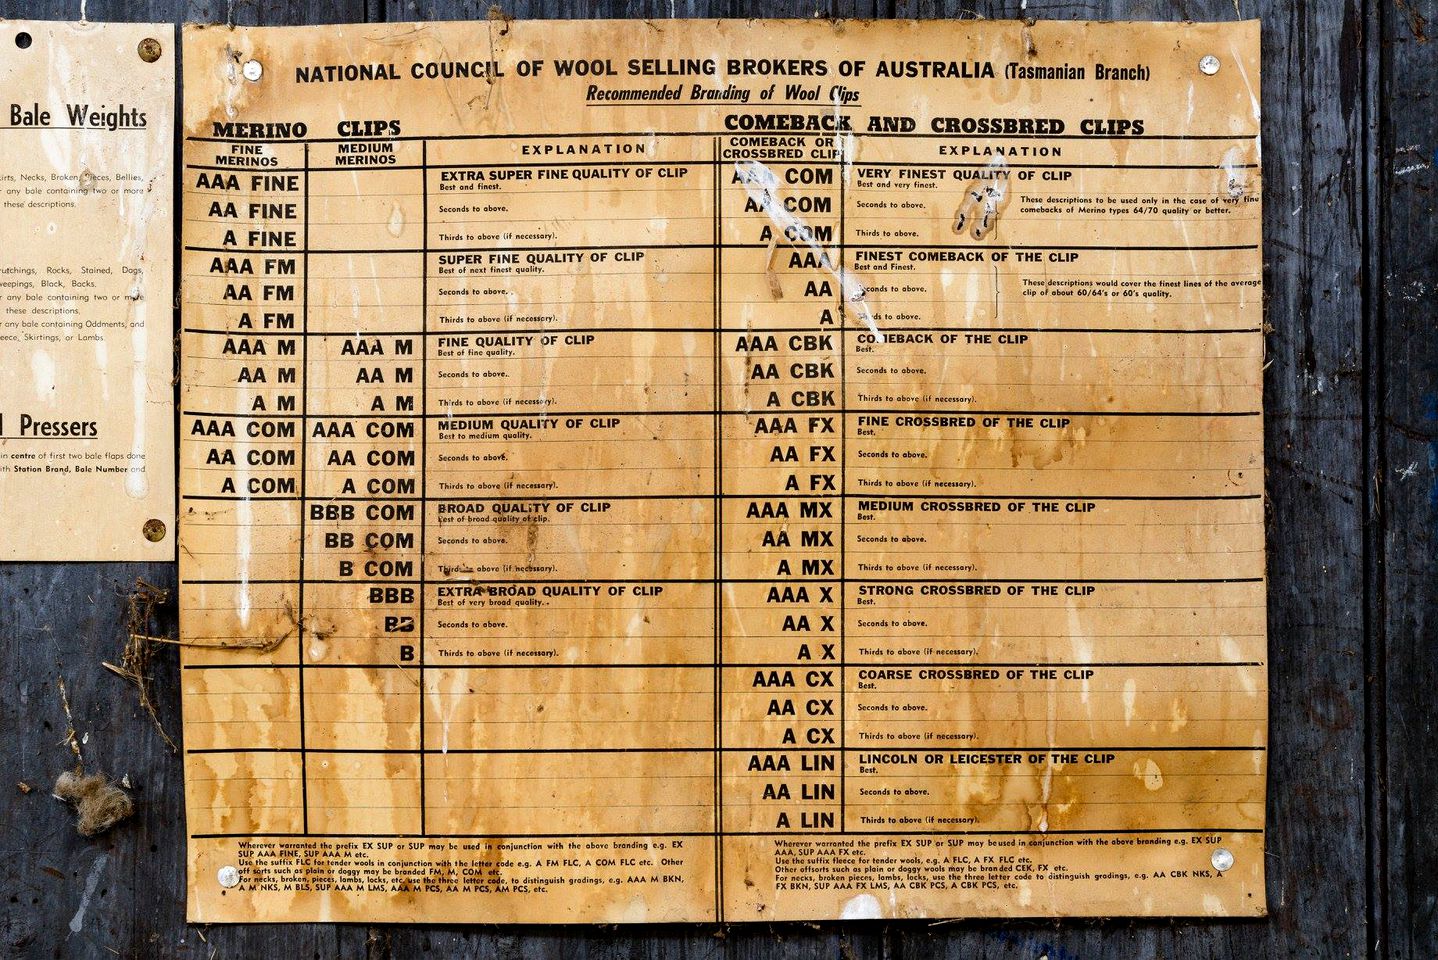 Bale Weights
irts, Necks, Broken, Pieces, Bellies,
r any bale containing two or more
these descriptions.
rutchings, Rocks, Stained, Dags,
weepings, Black, Backs.
r any bale containing two or more
these descriptions.
r any bale containing Oddments, and
eece, Skirtings, or Lambs.
Pressers
in centre of first two bale flaps done
ith Station Brand, Bale Number and
NATIONAL COUNCIL OF WOOL SELLING BROKERS OF AUSTRALIA (Tasmanian Branch)
Recommended Branding of Wool Clips
MERINO CLIPS
FINE MERINOS
MEDIUM MERINOS
EXPLANATION
AAA FINE EXTRA SUPER FINE QUALITY OF CLIP
Best and finest.
AA FINE Seconds to above.
A FINE Thirds to above (if necessary).
AAA FM SUPER FINE QUALITY OF CLIP
Best of next finest quality.
AA FM Seconds to above.
A FM Thirds to above (if necessary).
AAA M AAA M FINE QUALITY OF CLIP
Best of fine quality.
AA M AA M Seconds to above.
A M A M Thirds to above (if necessary).
AAA COM AAA COM MEDIUM QUALITY OF CLIP
Best to medium quality.
AA COM AA COM Seconds to above.
A COM A COM Thirds to above (if necessary).
BBB COM BROAD QUALITY OF CLIP
Best of broad quality of clip.
BB COM Seconds to above.
B COM Thirds to above (if necessary).
BBB EXTRA BROAD QUALITY OF CLIP
Best of very broad quality.
BB Seconds to above.
B Thirds to above (if necessary).
Wherever warranted the prefix EX SUP or SUP may be used in conjunction with the above branding e.g. EX
SUP AAA FINE, SUP AAA M etc.
Use the suffix FLC for tender wools in conjunction with the letter code e.g. A FM FLC, A COM FLC etc. Other
off sorts such as plain or doggy may be branded FM, M, COM etc.
For necks, broken, pieces, lambs, locks, etc. use the three letter code, to distinguish gradings, e.g. AAA M BKN,
A M NKS, M BLS, SUP AAA M LMS, AAA M PCS, AA M PCS, AM PCS, etc.
COMEBACK AND CROSSBRED CLIPS
COMEBACK OR
CROSSBRED CLIP
EXPLANATION
AAA COM VERY FINEST QUALITY OF CLIP
Best and very finest.
AA COM Seconds to above.
These descriptions to be used only in the case of very fine
comebacks of Merino types 64/70 quality or better.
A COM Thirds to above (if necessary).
AAA FINEST COMEBACK OF THE CLIP
Best and Finest.
AA Seconds to above.
These descriptions would cover the finest lines of the average
clip of about 60/64's or 60's quality.
A Thirds to above (if necessary).
AAA CBK COMEBACK OF THE CLIP
Best.
AA CBK Seconds to above.
A CBK Thirds to above (if necessary).
AAA FX FINE CROSSBRED OF THE CLIP
Best.
AA FX Seconds to above.
A FX Thirds to above (if necessary).
AAA MX MEDIUM CROSSBRED OF THE CLIP
Best.
AA MX Seconds to above.
A MX Thirds to above (if necessary).
AAA X STRONG CROSSBRED OF THE CLIP
Best.
AA X Seconds to above.
A X Thirds to above (if necessary).
AAA CX COARSE CROSSBRED OF THE CLIP
Best.
AA CX Seconds to above.
A CX Thirds to above (if necessary).
AAA LIN LINCOLN OR LEICESTER OF THE CLIP
Best.
AA LIN Seconds to above.
A LIN Thirds to above (if necessary).
Wherever warranted the prefix EX SUP or SUP may be used in conjunction with the above branding e.g. EX SUP
AAA, SUP AAA FX etc.
Use the suffix fleece for tender wools, e.g. A FLC, A FX FLC etc.
Other offsorts such as plain or doggy may be branded CEK, FX etc.
For necks, broken pieces, lambs, locks, use the three letter code to distinguish gradings, e.g. AA CBK NKS, A
FX BKN, SUP AAA FX LMS, AA CBK PCS, A CBK PCS, etc.